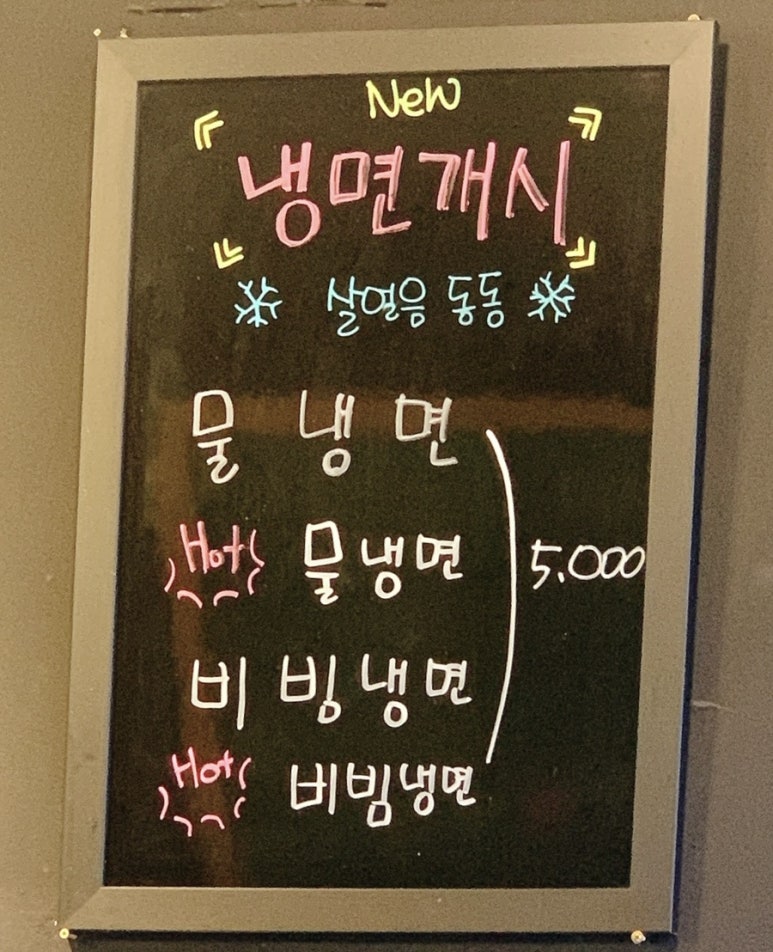 New
냉면개시
살얼음 동동
물냉면
Hot 물냉면
5.000
비빙냉면
Hot 비빔냉면